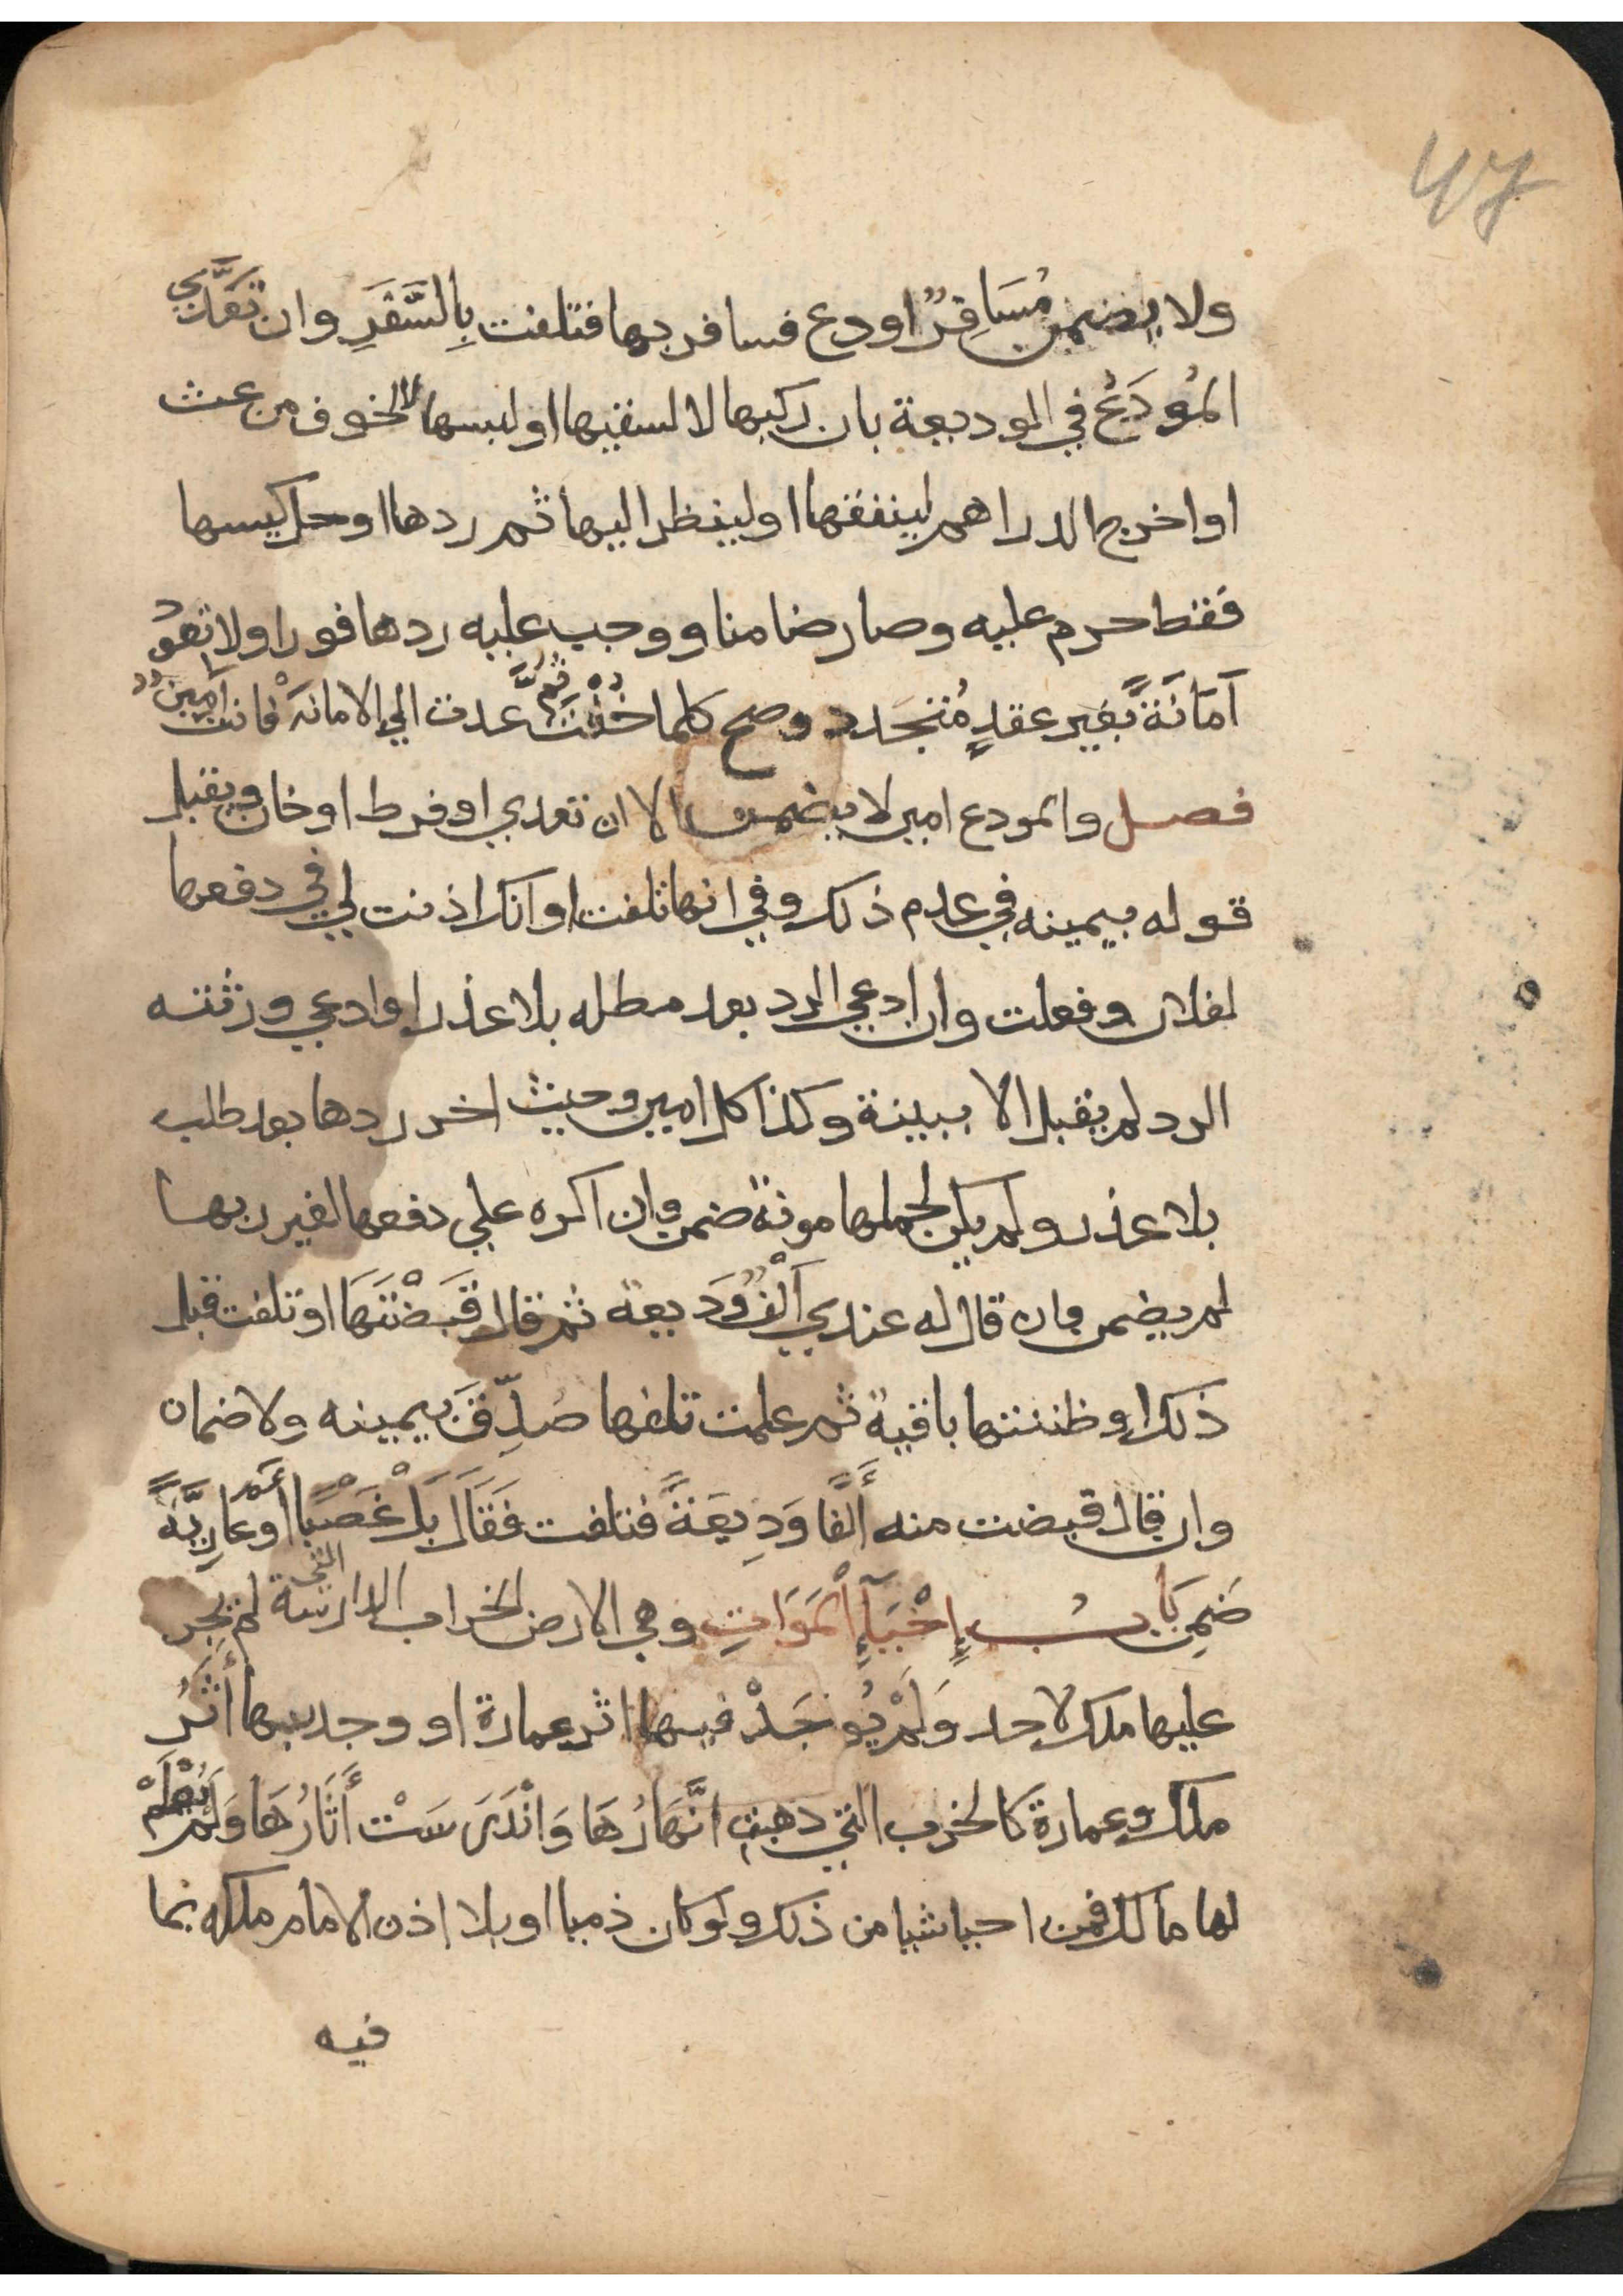 47
ولا يضمن مُسَافِرٌ اودع فسافر بها فتلفت بِالسَّفَرِ وان تَعَدَّي
المُودَعُ في الموديعة بان ركبها لا لسقيها او لبسها لا لخوف من عث
او اخرج الدراهم لينفقها او لينظر اليها ثم ردها او حل كيسها
فقط حرم عليه وصار ضامنا ووجب عليه ردها فورا ولا تعود
آمَانَةً بَغير عقدٍ مُتجَدد وصح كلما خُنْتَ ثُمَّ عدت الي الامانَة فانت أمِينٌ
فصل والمودع امين لا يضمن الا ان تعدي او فرط او خان ويقبل
قوله بيمينه في عدم ذلك وفي انها تلفت او انك اذنت لي في دفعها
لفلان وفعلت وان ادعي الرد بعد مطله بلا عذر او ادعي ورثته
الرد لم يقبل الا ببينة وكذا كل امين وحيث اخر ردها بعد طلب
بلا عذر ولم يكن لحملها مونة ضمن وان اكره علي دفعها لغير ربها
لم يضمن وان قال له عندي أَلْفٌ وَديعة ثم قال قَبَضْتَهَا او تلفت قبل
ذلك او ظننتها باقية ثم علمت تلفها صُدِّقَ بيمينه ولا ضمان
وان قال قبضت منه أَلْفًا وَدِيعَةً فتلفت فَقَالَ بَلْ غَصْبًا أَوْ عَارِيَّةً
ضَمِنَ بَابُ إِحْيَآءِ اْلمَوَاتِ وهي الارض الخراب الدارسة التي لم يَجرِ
عليها ملك لاحد وَلَمْ يُوجَدْ فيها اثر عمارة او وجد بها أَثَرُ
ملك وعمارة كالخرب التي ذهبت انَّهَارُهَا وَانْدَرَسَتْ أَثَارُهَا وَلَمْ يُعْلَمْ
لها مالك فمن احيا شيا من ذلك ولو كان ذميا او بلا اذن الامام ملكه بما
فيه